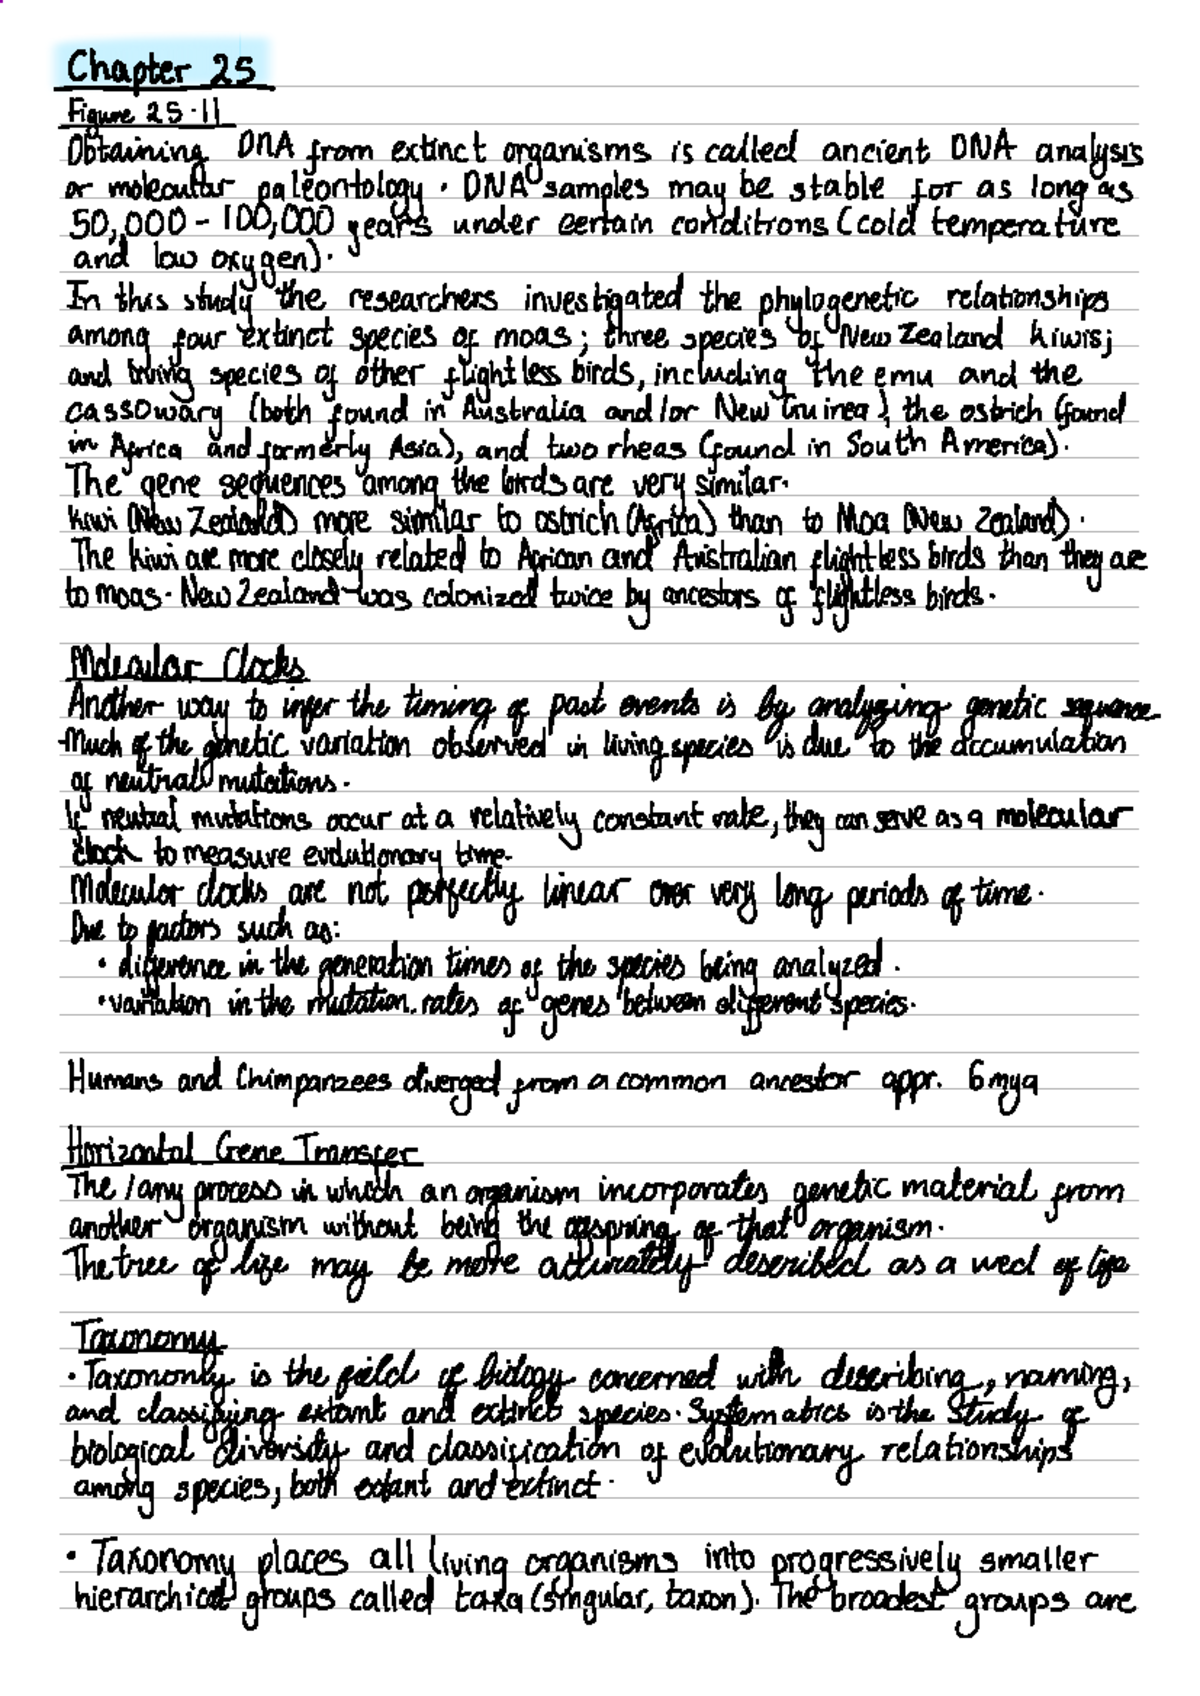 Chapter 25
Figure 25.11
Obtaining DNA from extinct organisms is called ancient DNA analysis
or molecular paleontology. DNA samples may be stable for as long as
50,000 - 100,000 years under certain conditions (cold temperature
and low oxygen).
In this study the researchers investigated the phylogenetic relationships
among four extinct species of moas; three species of New Zealand kiwis;
and living species of other flightless birds, including the emu and the
cassowary (both found in Australia and/or New Guinea), the ostrich (found
in Africa and formerly Asia), and two rheas (found in South America).
The gene sequences among the birds are very similar.
Kiwi (New Zealand) more similar to ostrich (Africa) than to Moa (New Zealand).
The kiwi are more closely related to African and Australian flightless birds than they are
to moas. New Zealand was colonized twice by ancestors of flightless birds.
Molecular Clocks
Another way to infer the timing of past events is by analyzing genetic sequence
Much of the genetic variation observed in living species is due to the accumulation
of neutral mutations.
If neutral mutations occur at a relatively constant rate, they can serve as a molecular
clock to measure evolutionary time.
Molecular clocks are not perfectly linear over very long periods of time.
Due to factors such as:
• difference in the generation times of the species being analyzed.
• variation in the mutation rates of genes between different species.
Humans and Chimpanzees diverged from a common ancestor appr. 6 mya
Horizontal Gene Transfer
The / any process in which an organism incorporates genetic material from
another organism without being the offspring of that organism.
The tree of life may be more accurately described as a wed of life
Taxonomy
• Taxononly is the field of biology concerned with describing, naming,
and classifying extant and extinct species. Systematics is the study of
biological diversity and classification of evolutionary relationships
among species, both extant and extinct.
• Taxonomy places all living organisms into progressively smaller
hierarchical groups called taxa (singular, taxon). The broadest groups are